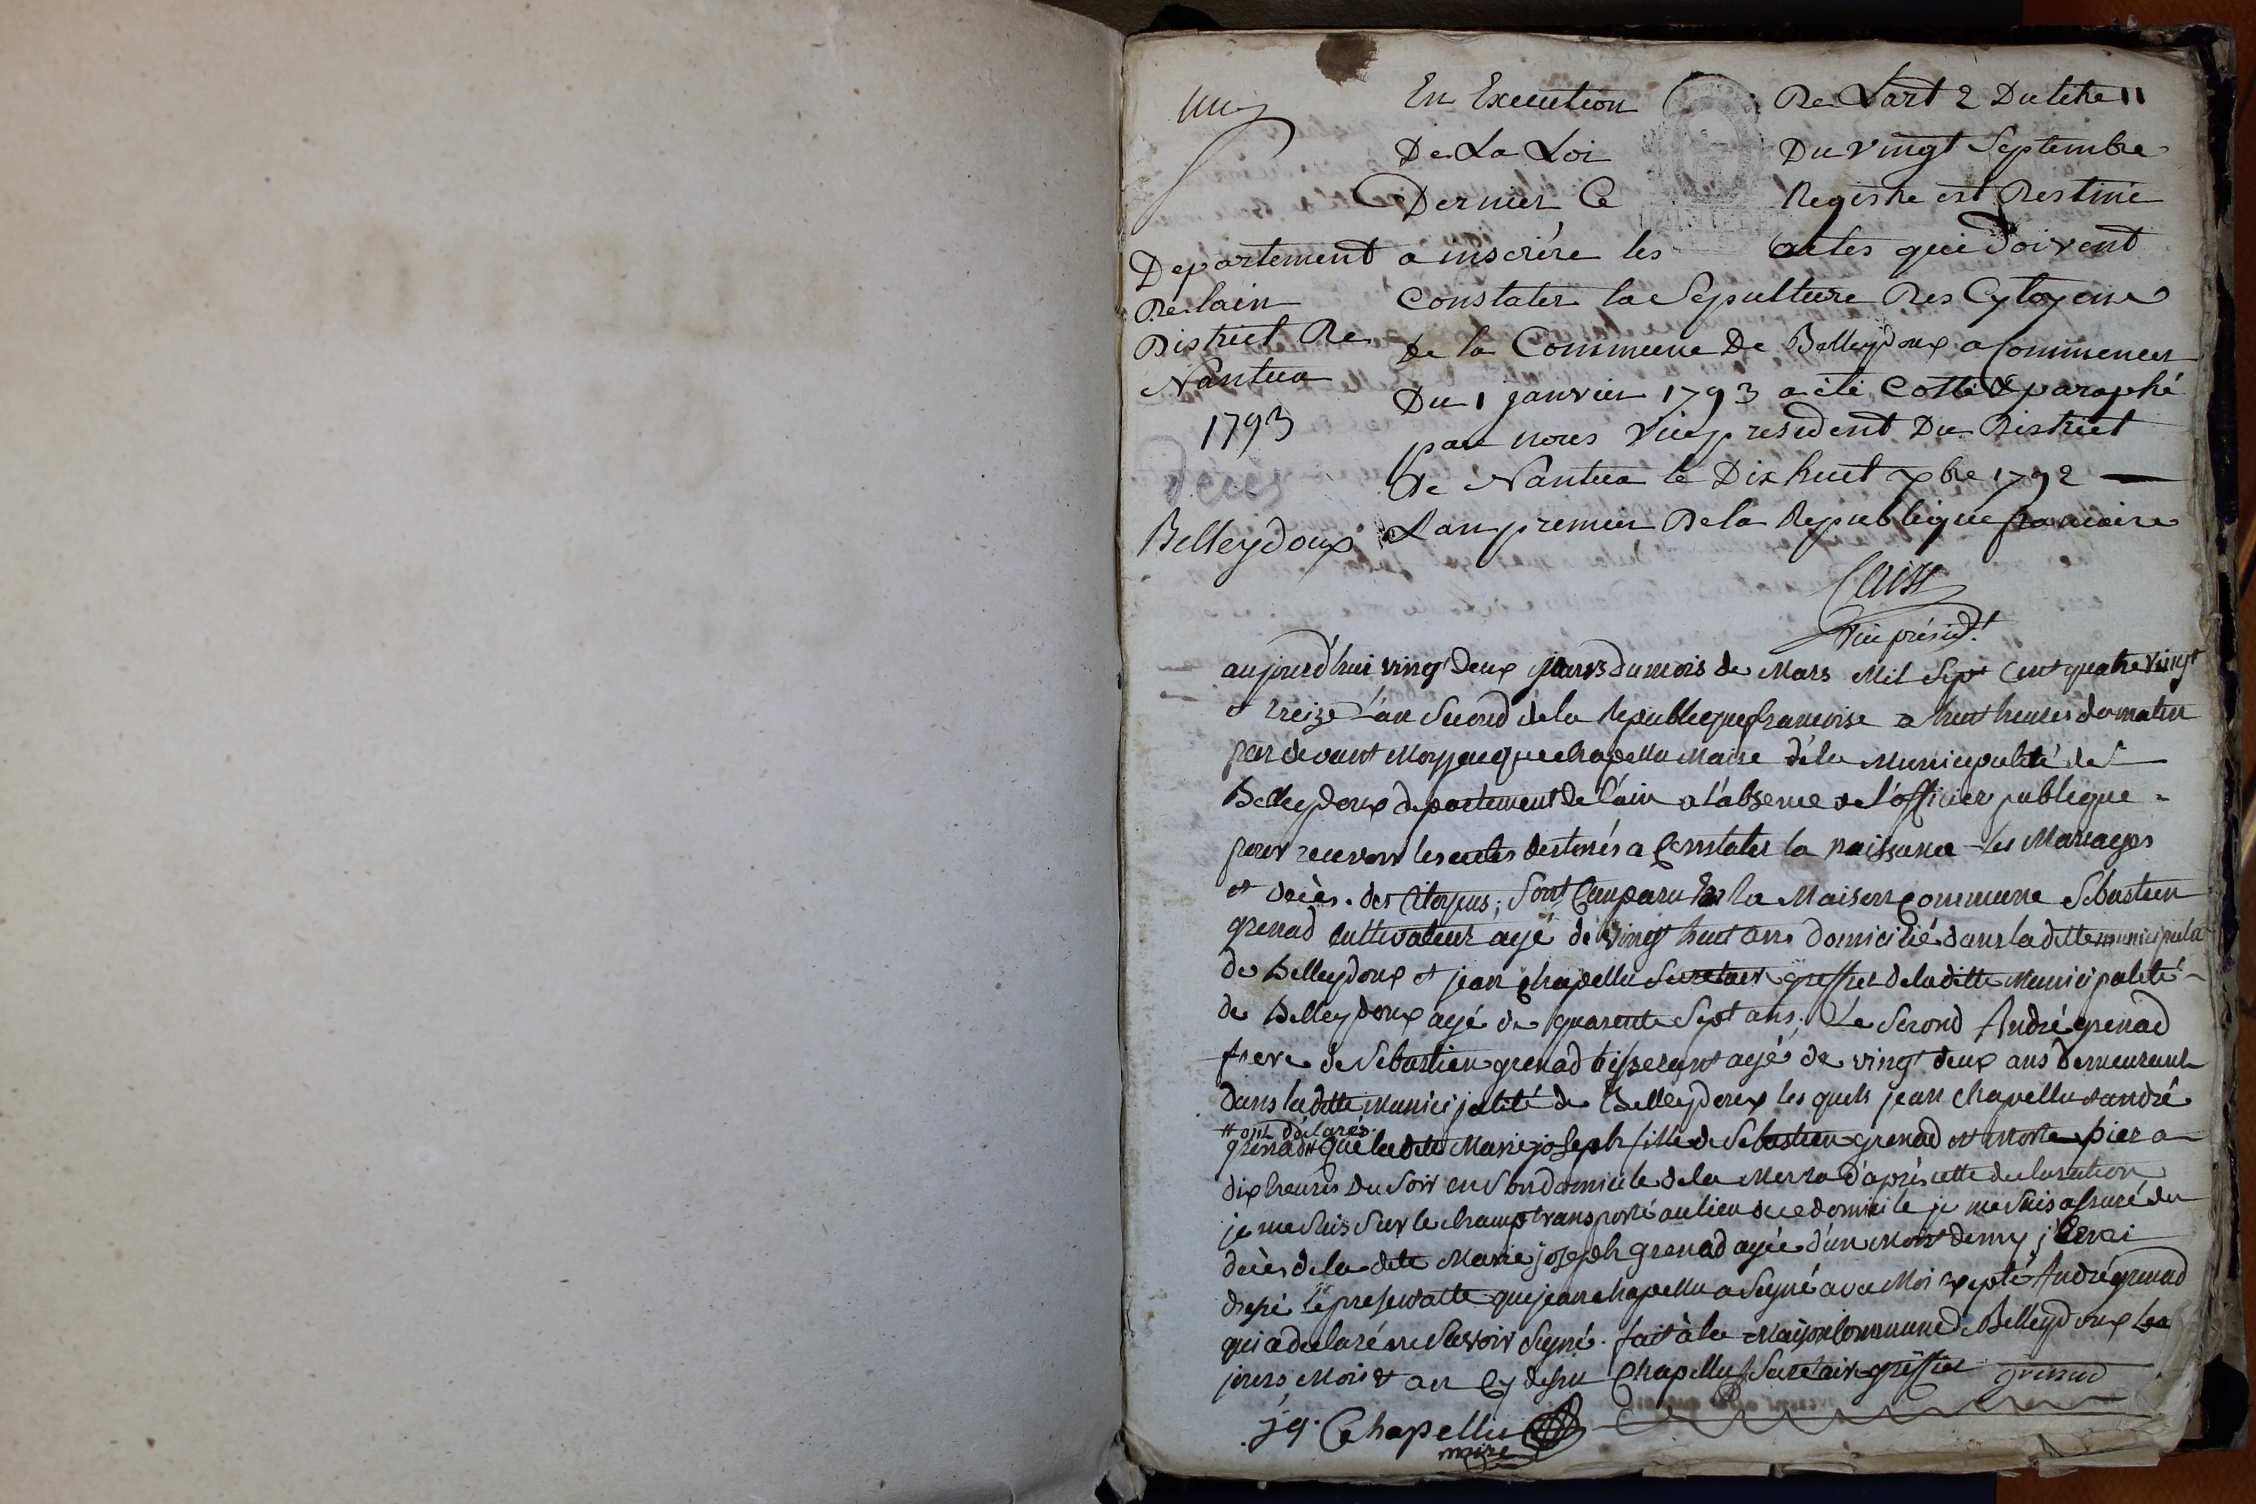 En Execution De Lart 2 Du titre 11
De La Loi Du vingt Septembre
Dernier Ce Registre est Destiné
a inscrire les actes qui doivent
Constater la Sepulture Des Cytoyens
de la Commune De Belleydoux a Commencer
Du 1 janvier 1793 a été Cotté & paraphé
par nous Vice president Du District
De Nantua le Dix huit xbre 1792
L'an premier De la Republique francoise
vice présidt.
Departement
De lain
District De
Nantua
1793
Décès
Belleydoux
aujourd'huy vingt Deux jours du mois de Mars Mil Sept Cent quatre vingt
et treize L'an Second de la Republique francoise a huit heures du matin
par devant Moy jacque chapellu Maire de la Municipalité de
Belleydoux departement de l'ain a l'absence de l'officier publique
pour recevoir les actes destinés a Constater la naissance les Mariages
et décès des Citoyens ; Sont Comparu la Maison Commune Sebastien
grenad Cultivateur agé de vingt huit ans domicilié dans la ditte municipalité
de Belleydoux et jean chapellu Secretair greffier de la ditte Municipalité
de Belleydoux agé de quarente Sept ans ; Le Second André grenad
frere de Sebastien grenad tisserant agé de vingt deux ans demeurant
Dans la ditte Municipalité de Belleydoux les quels jean chapellu et andré
# ont déclarés
grenad # que la dite Marie joseph fille de Sebastien grenad est Morte hier a
dix heures du Soir en Son domicile de la Merra d'après cette declaration
je me Suis Sur le champ transporté au lieu de ce domicile je me Suis assuré du
décès de la dite Marie joseph grenad agée d'un Mois & demy j'
dressé le present acte que jean chapellu a Signé avec Moi André grenad
qui a declaré ne Savoir Signé . fait à la Maison Commune de Belleydoux Les
jours Mois & an Cy dessu Chapellu Secretair greffier grenad
jq. Chapellu
maire